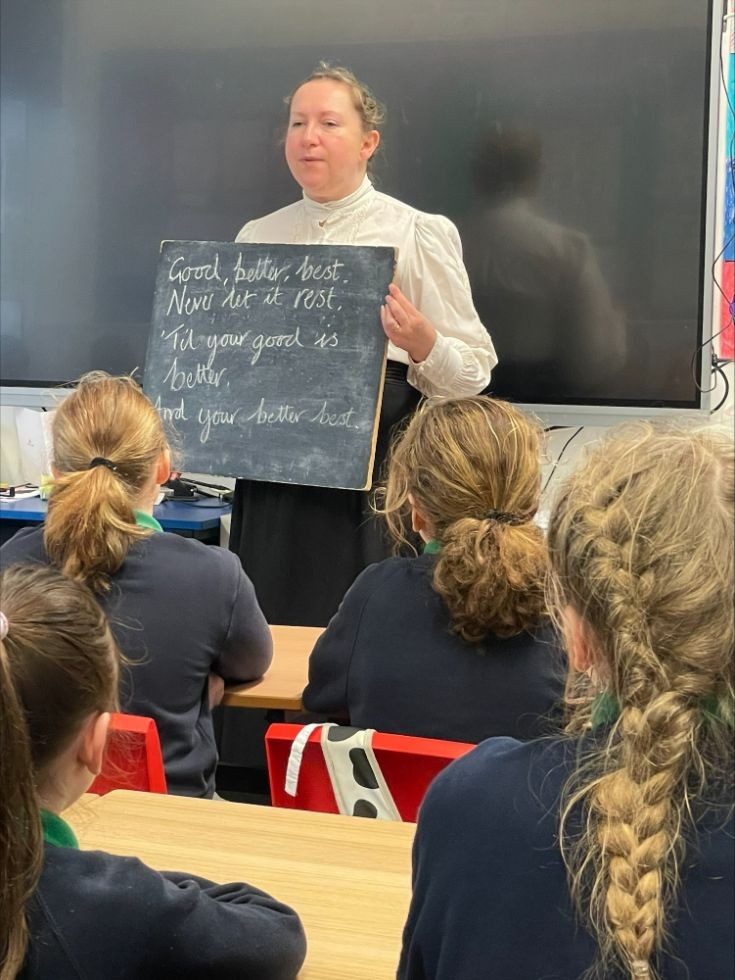 Good, better, best.
Never let it rest,
'Til your good is
better,
And your better best.